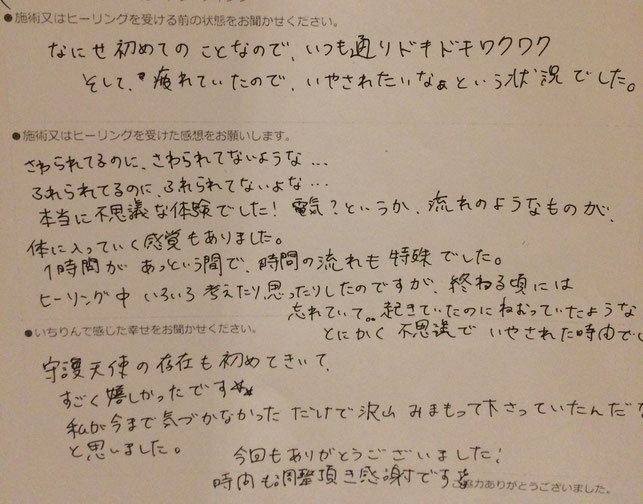 ●施術又はヒーリングを受ける前の状態をお聞かせください。
なにせ初めてのことなので、いつも通りドキドキワクワク
そして、疲れていたので、いやされたいなぁという状況でした。
●施術又はヒーリングを受けた感想をお願いします。
さわられてるのに、さわられてないような…
ふれられてるのに、ふれられてないよな…
本当に不思議な体験でした！電気？というか、流れのようなものが、
体に入っていく感覚もありました。
1時間があっという間で、時間の流れも特殊でした。
ヒーリング中いろいろ考えたり、思ったりしたのですが、終わる頃には
忘れていて。。起きていたのにねむっていたような
とにかく不思議でいやされた時間でし
●いちりんで感じた幸せをお聞かせください。
守護天使の存在も初めてきいて、
すごく嬉しかったです
私が今まで気づかなかっただけで沢山みまもって下さっていたんだな
と思いました。
今回もありがとうございました！
時間も調整頂き感謝です
ご協力ありがとうございました。